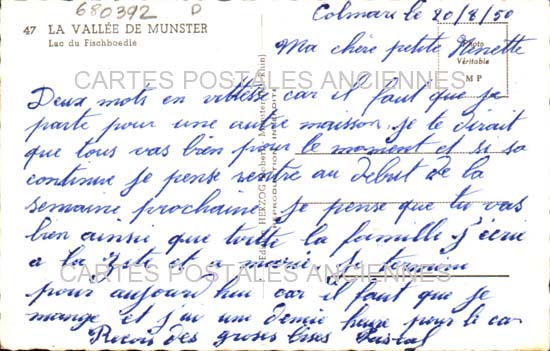 680392 D
47 LA VALLÉE DE MUNSTER
Lac du Fischboedlé
Colmar le 20/8/50
Photo
Véritable
M P
Ma chère petite Ninette
CARTES POSTALES ANCIENNES
Deux mots en vittesse car il faut que je
parte pour une autre maison. je te dirait
que tous vas bien pour le moment et si sa
continue je pense rentré au debut de la
semaine prochaine je pense que tu vas
bien ainsie que toute la famille j'écrie
a la et a je termine
pour aujourd'hui car il faut que je
mange et j'ai une demie heure pour le
Recois des groses bises
CARTES POSTALES ANCIENNES
HERZOG Munster
REPRODUCTION INTERDITE